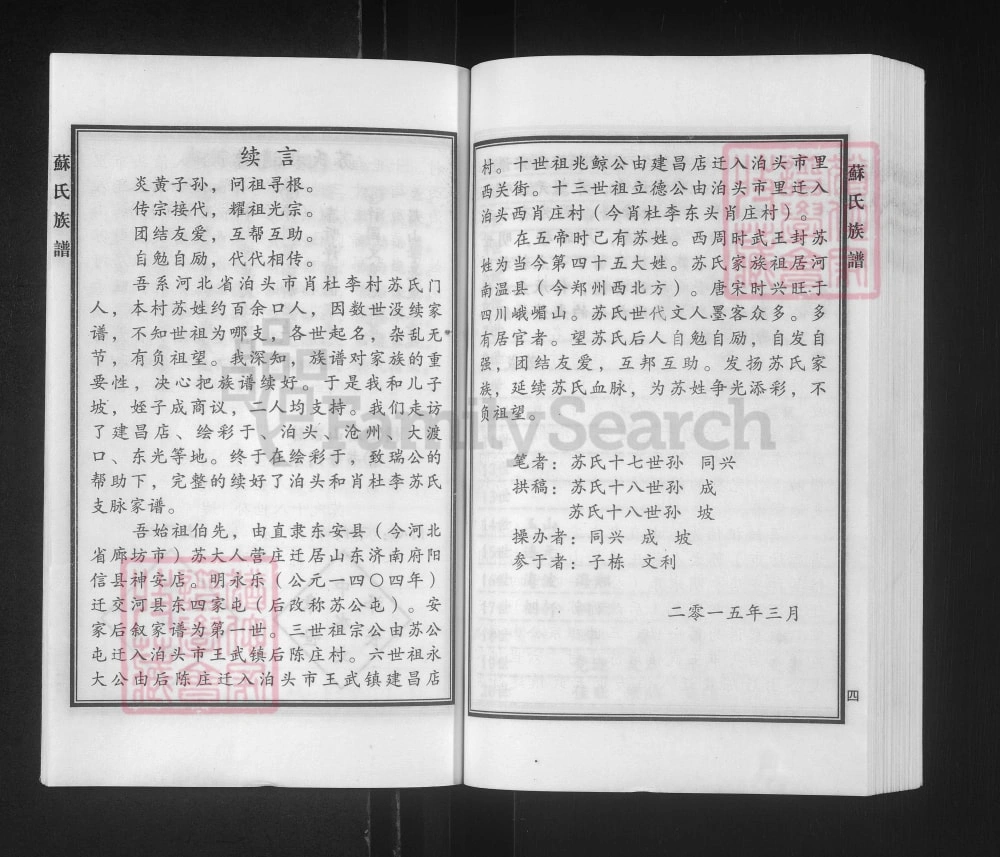 蘇氏族譜
续言
炎黄子孙，问祖寻根。
传宗接代，耀祖光宗。
团结友爱，互帮互助。
自勉自励，代代相传。
吾系河北省泊头市肖杜李村苏氏门
人，本村苏姓约百余口人，因数世没续家
谱，不知世祖为哪支，各世起名，杂乱无
节，有负祖望。我深知，族谱对家族的重
要性，决心把族谱续好。于是我和儿子
坡，姪子成商议，二人均支持。我们走访
了建昌店、绘彩于、泊头、沧州、大渡
口、东光等地。终于在绘彩于，致瑞公的
帮助下，完整的续好了泊头和肖杜李苏氏
支脉家谱。
吾始祖伯先，由直隶东安县（今河北
省廊坊市）苏大人营庄迁居山东济南府阳
信县神安店。明永乐（公元一四〇四年）
迁交河县东四家屯（后改称苏公屯）。安
家后叙家谱为第一世。三世祖宗公由苏公
屯迁入泊头市王武镇后陈庄村。六世祖永
大公由后陈庄迁入泊头市王武镇建昌店
村。十世祖兆鲸公由建昌店迁入泊头市里
西关街。十三世祖立德公由泊头市里迁入
泊头西肖庄村（今肖杜李东头肖庄村）。
在五帝时己有苏姓。西周时武王封苏
姓为当今第四十五大姓。苏氏家族祖居河
南温县（今郑州西北方）。唐宋时兴旺于
四川峨嵋山。苏氏世代文人墨客众多。多
有居官者。望苏氏后人自勉自励，自发自
强，团结友爱，互邦互助。发扬苏氏家
族，延续苏氏血脉，为苏姓争光添彩，不
负祖望。
笔者：苏氏十七世孙 同兴
拱稿：苏氏十八世孙 成
苏氏十八世孙 坡
操办者：同兴 成 坡
参于者：子栋 文利
二零一五年三月
蘇氏族譜
四
FamilySearch